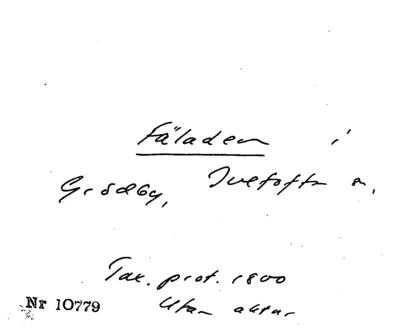 Fäladen i
Grödby, Ivetofta s.
Tax. prot. 1800
Nr 10779 Utan aktnr